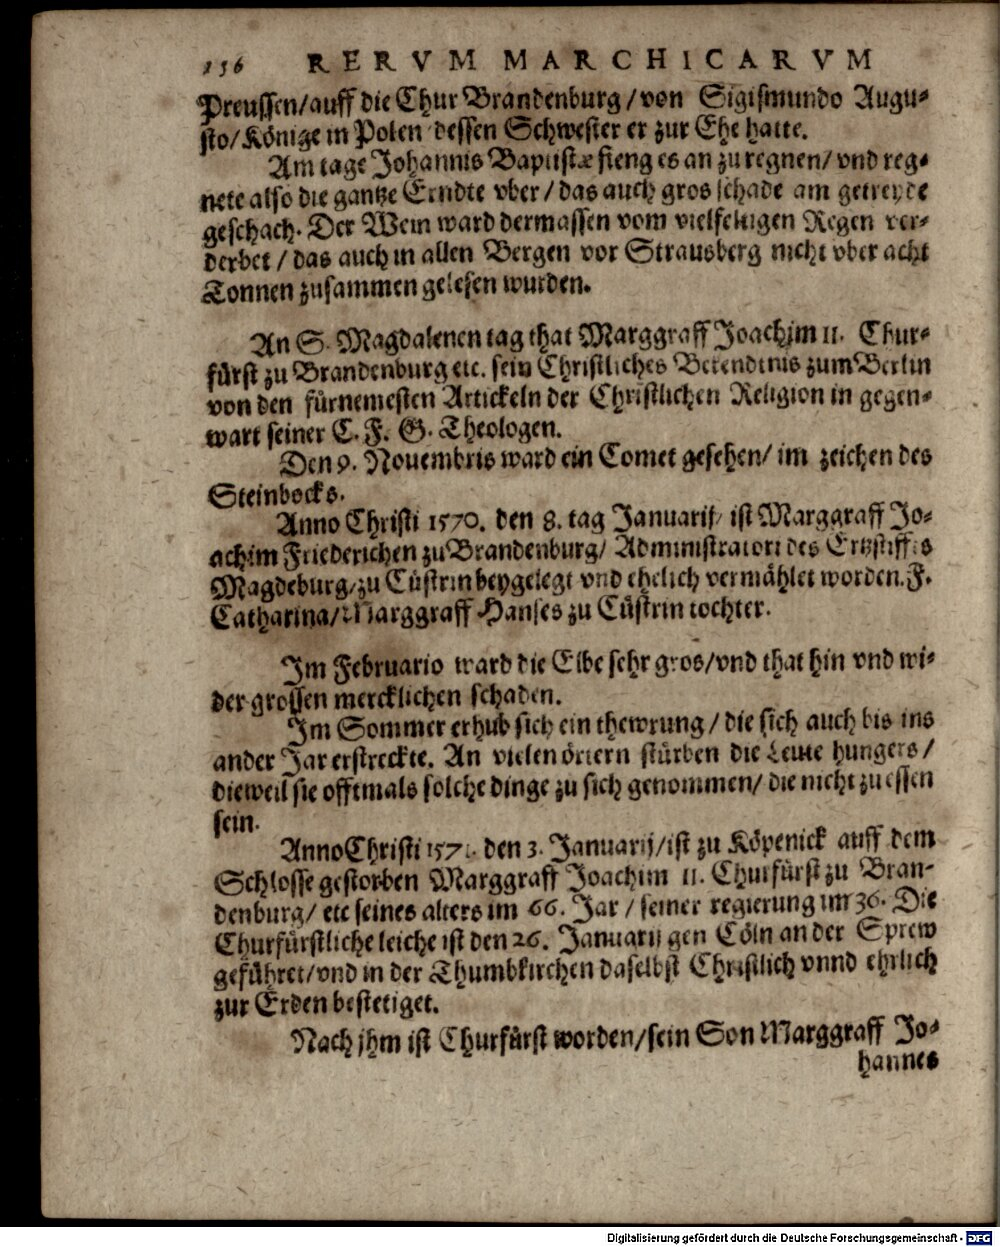 156 RERVM MARCHICARVM
Preussen/auff die Chur Brandenburg/von Sigismundo Augu-
sto/Könige in Polen dessen Schwester er zur Ehe hatte.
Am tage Johannis Baptistæ fieng es an zu regnen/ vnd reg-
nete also die gantze Erndte vber/das auch gros schade am getreyde
geschach. Der Wein ward dermassen vom vielfeltigen Regen ver-
derbet/das auch in allen Bergen vor Strausberg nicht vber acht
Tonnen zusammen gelesen wurden.
An S. Magdalenen tag that Marggraff Joachim II. Chur-
fürst zu Brandenburg etc. sein Christliches Bekendtnis zum Berlin
von den fürnemesten Artickeln der Christlichen Religion in gegen-
wart seiner C. F. G. Theologen.
Den 9. Nouembris ward ein Comet gesehen/ im zeichen des
Steinbocks.
Anno Christi 1570. den 8. tag Januarij/ ist Marggraff Jo-
achim Friederichen zu Brandenburg/ Administratori des Ertzstiffts
Magdeburg/zu Cüstrin beygelegt vnd ehelich vermählet worden. F.
Catharina/Marggraff Hanses zu Cüstrin tochter.
Im Februario ward die Elbe sehr gros/vnd that hin vnd wi-
der grossen mercklichen schaden.
Im Sommer erhub sich ein thewrung/die sich auch bis ins
ander Jar erstreckte. An vielen örtern stürben die Leute hungers/
dieweil sie offtmals solche dinge zu sich genommen/ die nicht zu essen
sein.
Anno Christi 1571. den 3. Januarij/ist zu Köpenick auff dem
Schlosse gestorben Marggraff Joachim II. Churfürst zu Bran-
denburg/ etc seines alters im 66. Jar/ seiner regierung im 36. Die
Churfürstliche leiche ist den 26. Januarij gen Cöln an der Sprew
geführet/vnd in der Thumbkirchen daselbst Christlich vnnd ehrlich
zur Erden bestetiget.
Nach jhm ist Churfürst worden/sein Son Marggraff Jo-
hannes
Digitalisierung gefördert durch die Deutsche Forschungsgemeinschaft - DFG